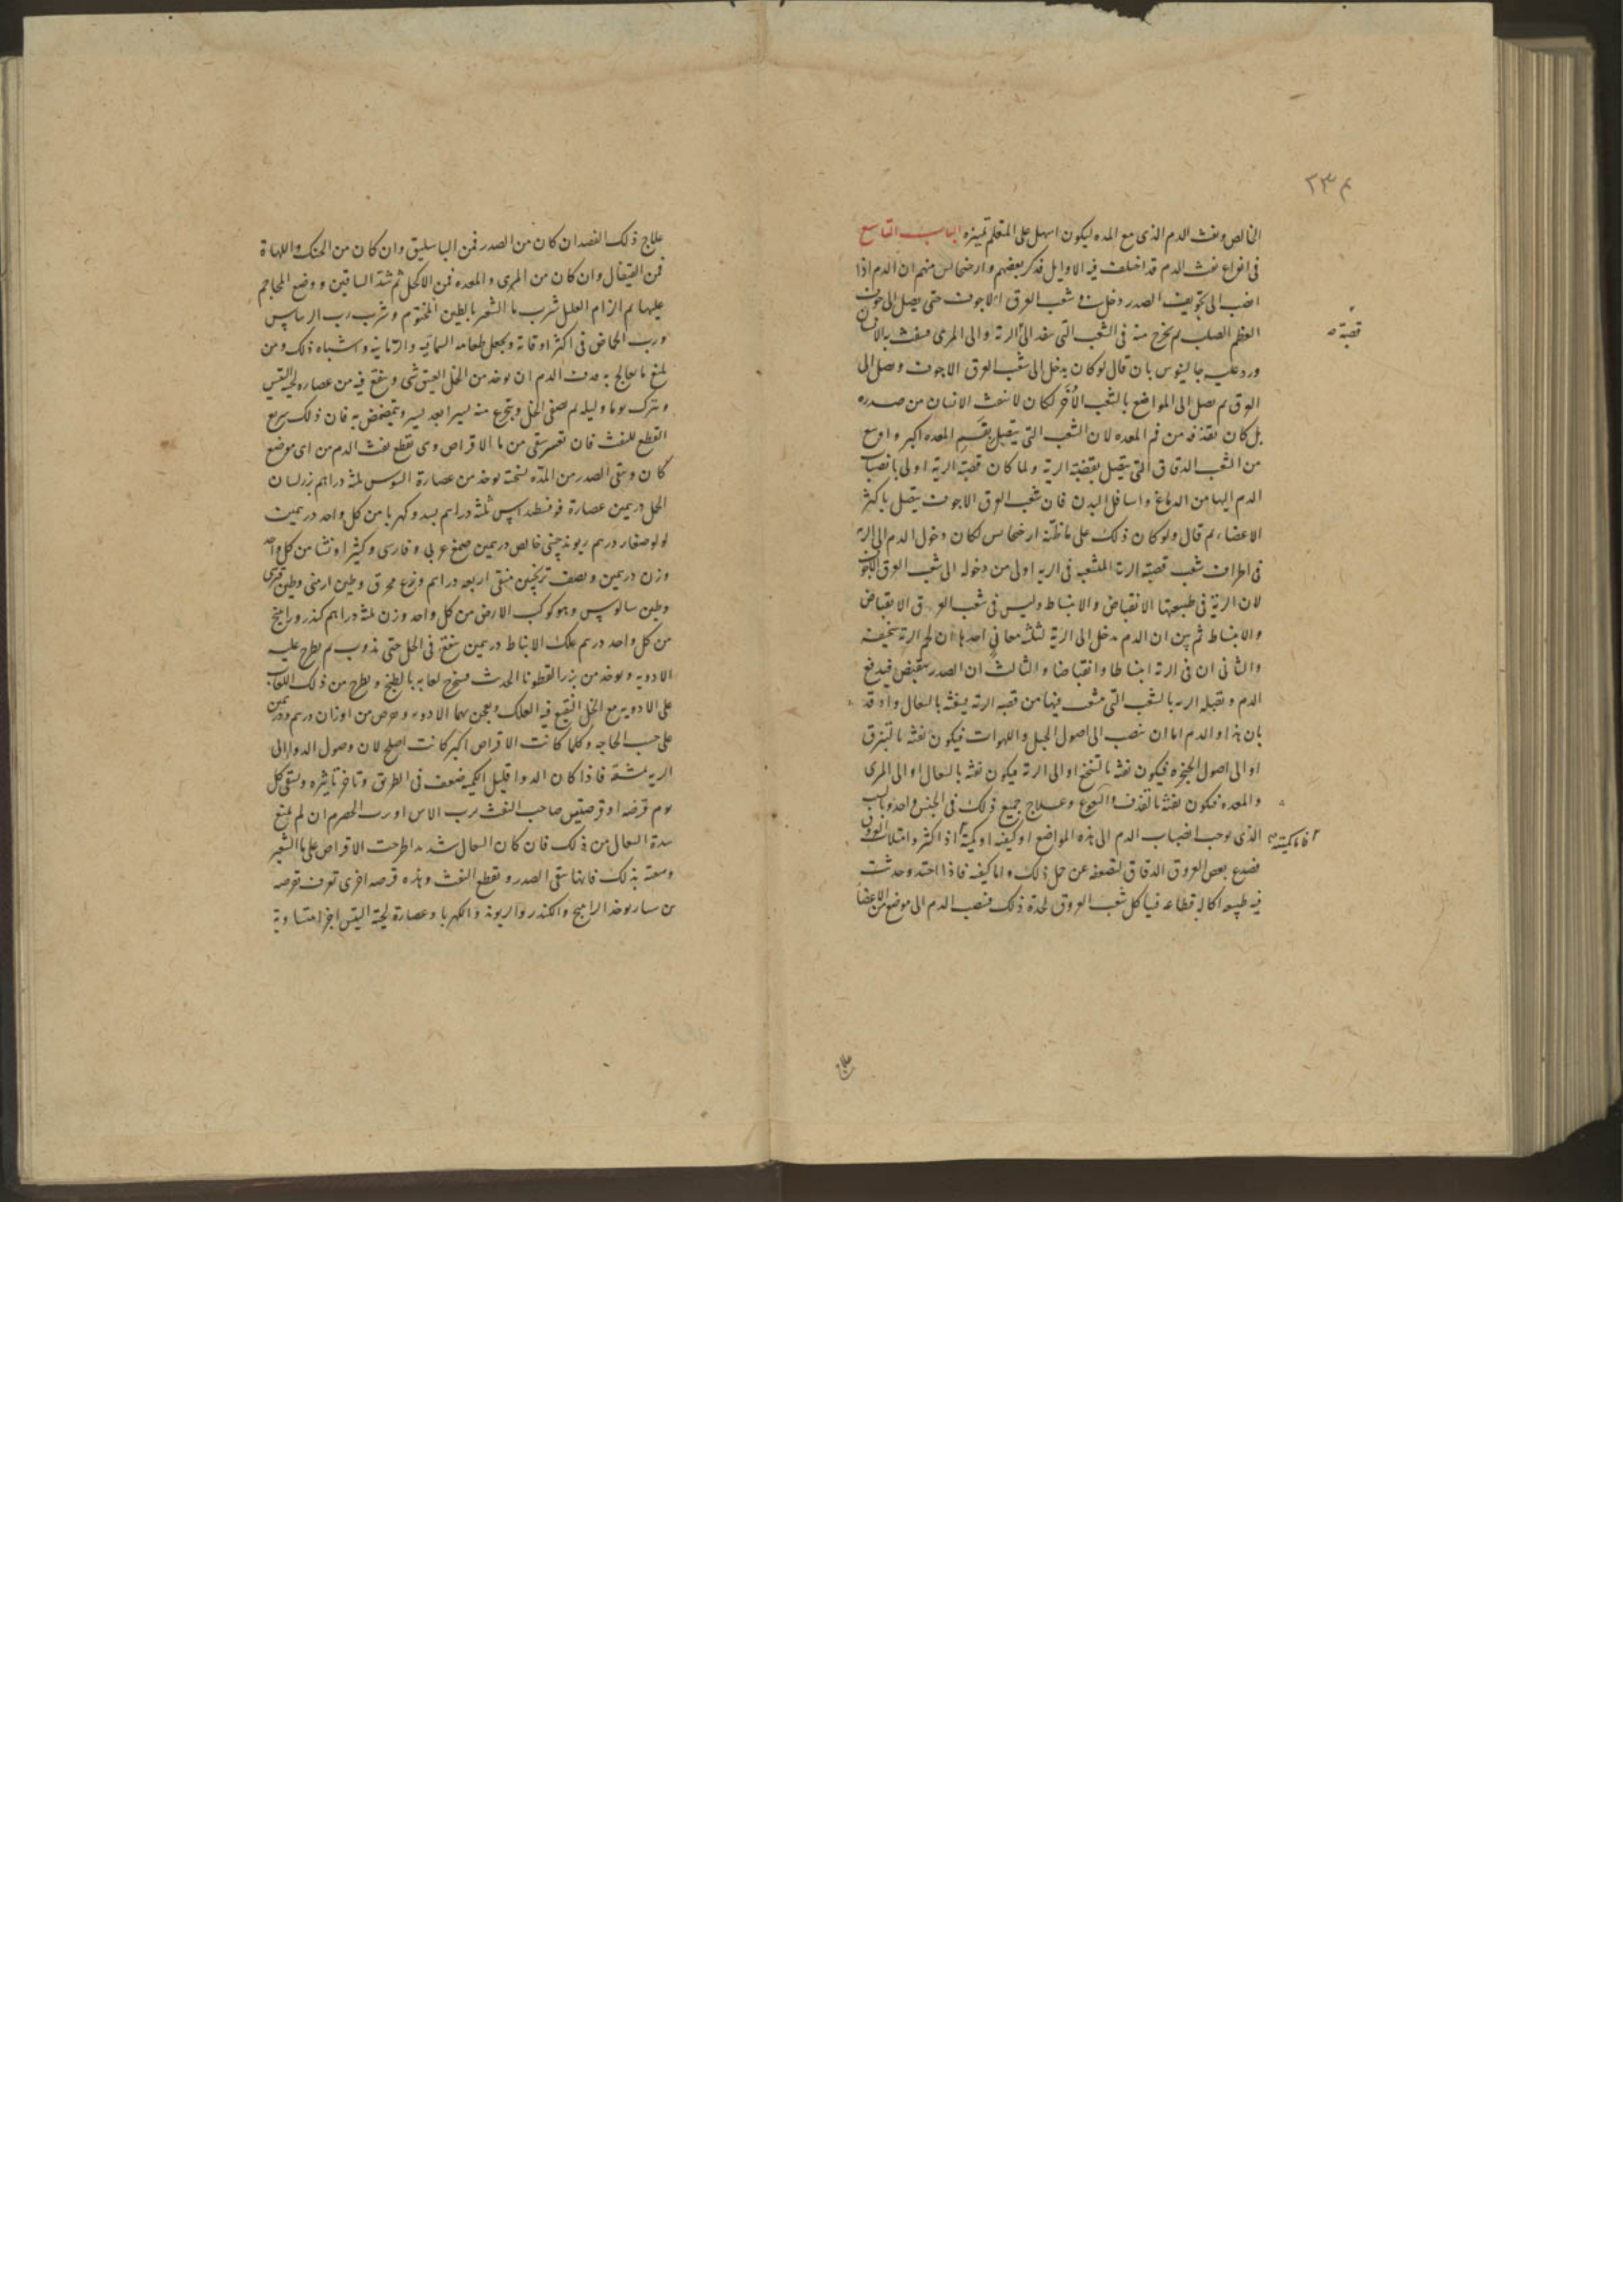 ٢٣٤
الخالص ونفث الدم الذى مع المده ليكون اسهل على المتعلم تميزه الباب التاسع
فى انواع نفث الدم قد اختلف فيه الاوايل فذكر بعضهم وارضجانس منهم ان الدم اذا
انصب الى تجويف الصدر دخل فى شعب العرق الاجوف حتى يصل الى جوف
العظم الصلب ثم يخرج منه فى الشعب التى سفد الى الرئة والى المرى فينفث به الانسان
قصبة
ورد عليه جالينوس بان قال لو كان يدخل الى شعب العرق الاجوف ويصل الى
العرق ثم يصل الى المواضع بالشعب الأُخَر لكان لا ينفث الانسان من صدره
بل كان يقذفه من فم المعده لان الشعب التى يتصل بفم المعده اكبر واوسع
من الشعب الدقاق التى يتصل بقصبة الرية ولما كان قصبة الرية اولى بانصباب
الدم اليها من الدماغ واسافل البدن فان شعب العرق الاجوف يتصل باكثر
الاعضاء ثم قال ولو كان ذلك على ما ظنه ارضجانس لكان دخول الدم الى الرية
فى اطراف شعب قصبة الرية المنشعبه فى الريه اولى من دخوله الى شعب العرق الاجوف
لان الرية فى طبيعتها الانقباض والانبساط وليس فى شعب العرق الانقباض
والانبساط ثم بين ان الدم يدخل الى الرية لثلثة معانى احدها ان لحم الرية سخيفه
والثانى ان فى الرية انبساطا وانقباضا والثالث ان الصدر ينقبض فيدفع
الدم وتقبله الريه بالشعب التى ينشعب فيها من قصبه الرية فينفثه بالسعال واذ قد
بان هذا والدم اما ان ينصب الى اصول الحبل واللهوات فيكون نفثه بالتبزق
او الى اصول الحنجره فيكون نفثه بالتنخع او الى الرية فيكون نفثه بالسعال او الى المرى
والمعده فيكون نفثه بالقذف والتهوع وعلاج جميع ذلك فى الجنس واحد والسبب
الذى يوجب انصباب الدم الى هذه المواضع او كيفيته او كميته اذا كثر وامتلات العروق
فاما كميته
فصدع بعض العروق الدقاق لضعفه عن حمل ذلك واما كيفيته فاذا احتد وحدثت
فيه طبيعه اكاله قطاعه فياكل شعب العروق لحدة ذلك فينصب الدم الى موضع من الاعضا
علاج
علاج ذلك الفصد ان كان من الصدر فمن الباسليق وان كان من الحنك واللهاة
فمن القيفال وان كان من المرى والمعده فمن الاكحل ثم شد الساقين ووضع المحاجم
عليها ثم الزام العليل شرب ما الشعير بالطين المختوم وشرب رب الريباس
ورب الحماض فى اكثر اوقاته ويجعل طعامه السماقيه والرمانيه واشباه ذلك ومن
بلغ ما يعالج به نفث الدم ان يوخذ من الخل العتيق شى وينقع فيه من عصاره لحيه التيس
ويترك يوما وليله ثم يصفى الخل ويتجرع منه يسيرا بعد يسير ويتمضمض به فان ذلك سريع
القطع للنفث فان تعسر سقى من ما الاقراص وهى تقطع نفث الدم من اى موضع
كان وينقى الصدر من المدّه نسخته يوخذ من عصارة السوس ثلثة دراهم بزر لسان
الحمل درهمين عصارة فوفسطداس ثلثة دراهم بسد وكهربا من كل واحد درهمين
لولو صغار درهم ريوند چينى خالص درهمين صمغ عربى وفارسى وكثيرا ونشا من كل واحد
وزن درهمين ونصف ترنجبين منقى اربعه دراهم وودع محرق وطين ارمنى وطين قبرسى
وطين ساموس وهو كوكب الارض من كل واحد وزن ثلثة دراهم كندر ورامج
من كل واحد درهم علك الانباط درهمين ينقع فى الخل حتى يذوب ثم يطرح عليه
الادويه ويوخذ من بزر القطونا الحديث فيخرج لعابه بالطبخ ويطرح من ذلك اللعاب
على الادويه مع الخل النقيع فيه العلك ويعجن بهما الادويه ويقرص من اوزان درهم ودرهمين
على حسب الحاجه وكلما كانت الاقراص اكبر كانت اصلح لان وصول الدوا الى
الريه بمشقة فاذا كان الدوا قليل الكميه ضعف فى الطريق وتاخر تاثيره ويسقى كل
يوم قرصه او قرصتين صاحب النفث برب الاس او رب الحصرم ان لم يمنع
شدة السعال من ذلك فان كان السعال شديدا طرحت الاقراص على ما الشعير
وسقته بذلك فانها تنقى الصدر وتقطع النفث وهذه قرصه اخرى تعرف بقرصه
بن سيار يوخذ الرامج والكندر والريوند والكهربا وعصارة لحية التيس اجزا متساوية